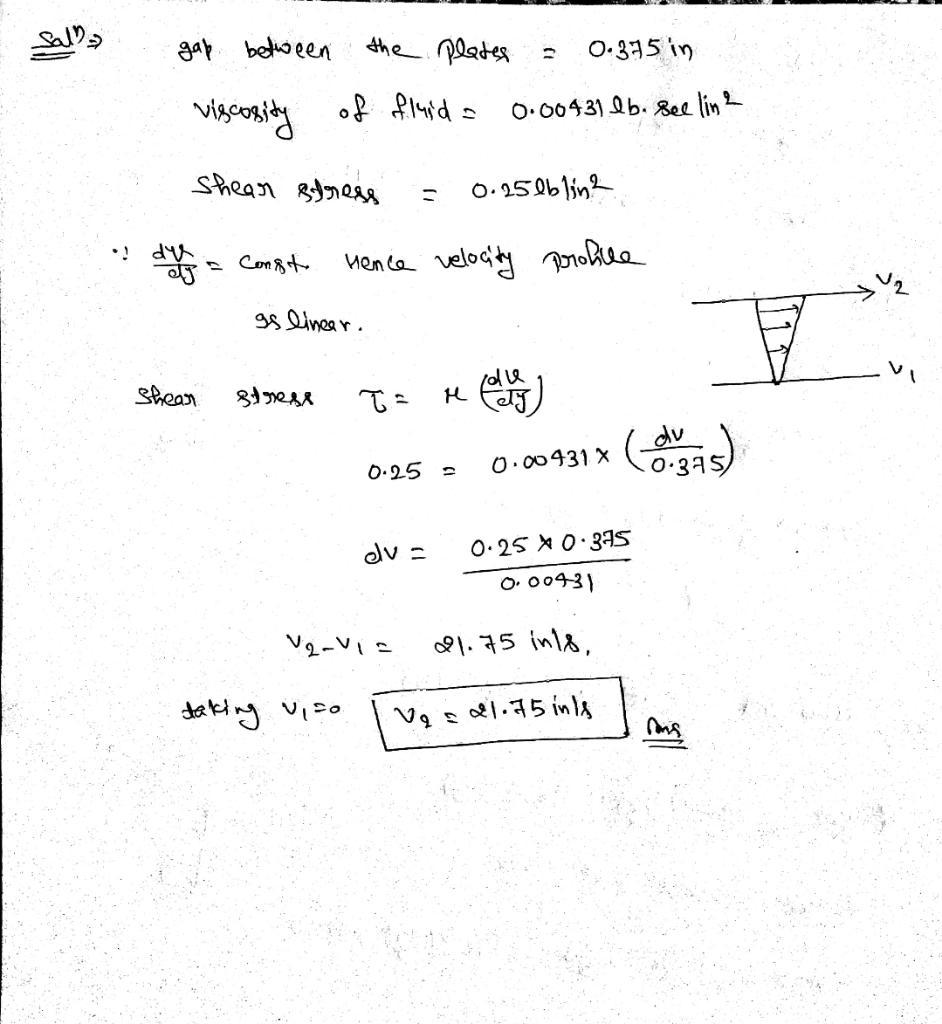 Solⁿ ⇒ gap between the plates = 0.375 in
viscosity of fluid = 0.00431 lb. sec/in²
Shear stress = 0.25 lb/in²
∵ du/dy = const. Hence velocity profile
is linear.
V₂
V₁
Shear stress τ = μ (du/dy)
0.25 = 0.00431 × (dv/0.375)
dv = 0.25 × 0.375 / 0.00431
V₂-V₁ = 21.75 in/s,
taking V₁=0 V₂ = 21.75 in/s Ans